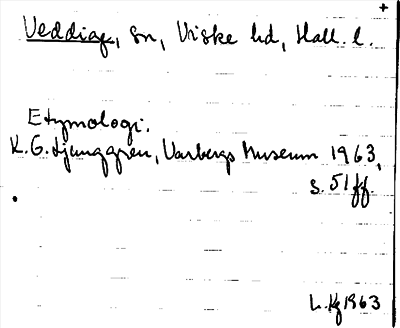 +
Veddige, sn, Viske hd, Hall. l.
Etymologi.
K.G. Ljunggren, Varbergs Museum 1963,
s. 51 ff.
L. Hg 1963